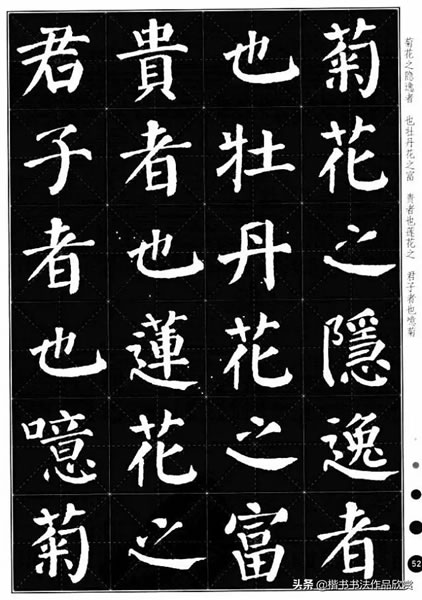 菊花之隱逸者
也牡丹花之富
貴者也蓮花之
君子者也噫菊
菊花之隐逸者 也牡丹花之富 贵者也莲花之 君子者也噫菊
52
头条 @楷书书法作品欣赏